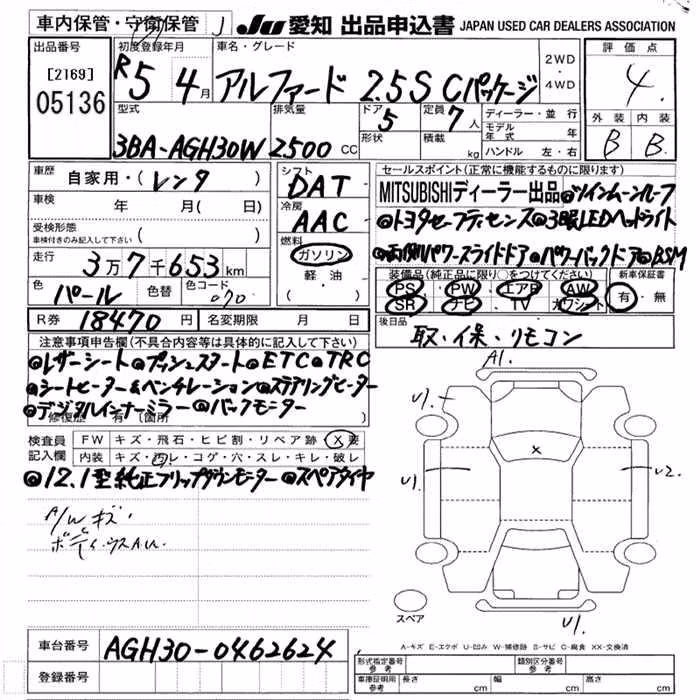 車内保管・守衛保管 J JU 愛知 出品申込書 JAPAN USED CAR DEALERS ASSOCIATION
出品番号
[2169]
05136
初度登録年月
R5 4月
車名・グレード
アルファード 2.5S Cパッケージ
2WD
・
4WD
評価点
4.
外装 内装
B B.
型式
3BA-AGH30W
排気量
2500 CC
ドア
5
形状
定員
7人
積載
kg
ディーラー・並行
モデル年式 年
ハンドル 左・右
車歴
自家用・(レンタ)
車検
年 月(日)
受検形態
車検付きのみ記入して下さい
( )
走行
3万7千653km
色
パール
色替
色コード
070
シフト
DAT
冷房
AAC
燃料
ガソリン
軽・油
( )
セールスポイント(正常に機能するものに限ります)
MITSUBISHIディーラー出品 @ツインムーンルーフ
@トヨタセーフティセンス@3眼LEDヘッドライト
@両側パワースライドドア@パワーバックドア@BSM
装備品(純正品に限り○をつけてください) 新車保証書
PS・PW・エアB・AW
SR・ナビ・TV・カワシート
有・無
R券 18470円 名変期限 月 日
後日品
取・保・リモコン
注意事項申告欄(不具合内容等は具体的に記入して下さい)
@レザーシート@プッシュスタート@ETC@TRC
@シートヒーター&ベンチレーション@ステアリングヒーター
@デジタルインナーミラー@バックモニター
修復歴 有(箇所
検査員
記入欄
FW キズ・飛石・ヒビ割・リペア跡・X要
内装 キズ・汚レ・コゲ・穴・スレ・キレ・破レ
@12.1型純正フリップダウンモニター@スペアタイヤ
A/Wキズ.
A1.
U1.
X
U1
U2.
U1.
スペア
A-キズ E-エクボ U-凹み W-補修跡 S-サビ C-腐食 XX-交換済
車台番号 AGH30-0462624
登録番号
形式指定番号
参考
類別区分番号
参考
車庫証明用
参考
長さ cm 幅 cm 高さ cm